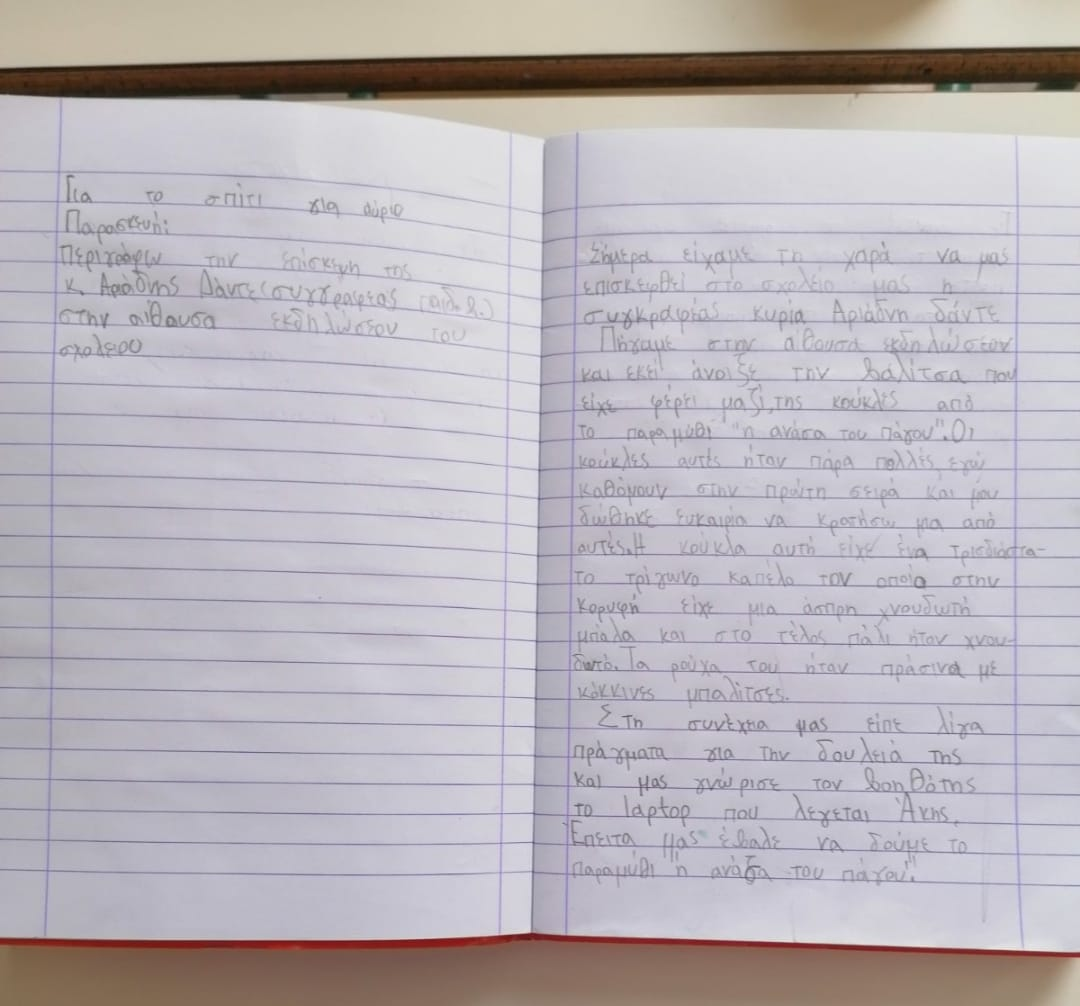 Για το σπίτι για αύριο
Παρασκευή:
Περιγράφω την επίσκεψη της
κ. Αριάδνης Δάντε (συγγραφέας παιδ. β.)
στην αίθουσα εκδηλώσεον του
σχολείου
Σήμερα είχαμε τη χαρά να μας
επισκεφθεί στο σχολείο μας η
συγκραφέας κυρία Αριάδνη δάντε
Πήγαμε στην άθουσα εκδηλώσεον
και εκεί άνοιξε την βαλίτσα που
είχε φέρει μαζί της κούκλες από
το παραμύθι "η ανάσα του πάγου". Οι
κούκλες αυτές ήταν πάρα πολλές, εγώ
καθόμουν στην πρώτη σειρά και μου
δώθηκε ευκαιρία να κρατήσω μια από
αυτές. Η κούκλα αυτή είχε ένα τρισδιάστα-
το τρίγωνο καπέλο τον οποίο στην
κορυφή είχε μια άσπρη χνουδωτή
μπάλα και στο τέλος πάλι ήταν χνου-
δωτό. Τα ρούχα του ήταν πράσινα με
κόκκινες μπαλίτσες.
Στη συνέχεια μας είπε λίγα
πράγματα για την δουλειά της
και μας γνώρισε τον βοηθότης
το laptop που λέγεται Άκης.
Έπειτα μας έβαλε να δούμε το
παραμύθι "η ανάσα του πάγου".